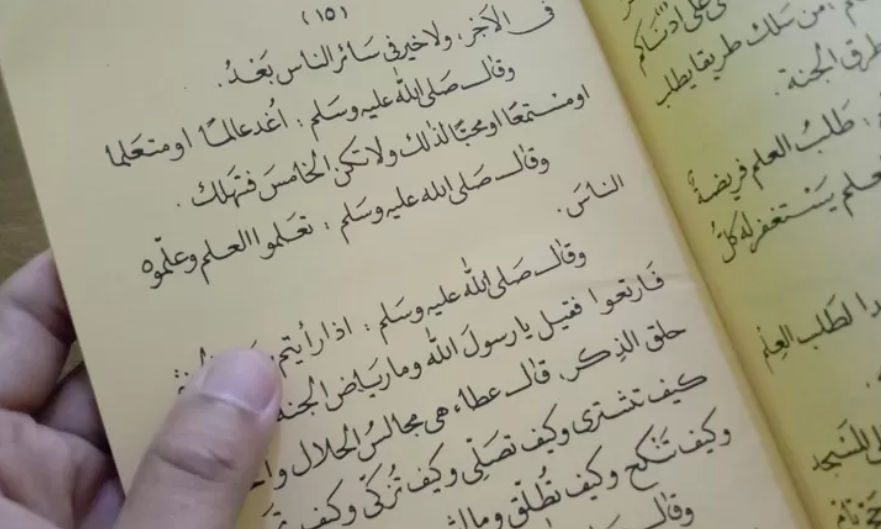 (١٥)
فى الآخر، ولاخير فى سَائر الناس بَعْدُ.
وقال صَلى الله عليه وسَلم : اُغْد عالمًا اومتعَلما
اومستمعًا اومحبًّا لذلك ولاتكن الخامسَ فتهلك .
وقال صَلى الله عليه وسَلم : تعَلموا العلم وعلّموه
الناسَ.
وقال صَلى الله عليه وسَلم : اذا رأيتم
فَارتعوا فقيل يارسولَ الله ومارياض الجنة
حلق الذِكر. قال عطاء هى مجالسُ الحلال
كيف تشترى وكيف تصَلّى وكيف تُزكّى وكيف
وكيف تَنْكح وكيف تُطلّق
وقال
على ادناكم
من سَلك طريقا يطلب
طرق الجنة .
طَلبُ العلم فريضة
يَسْتغفر له كلُّ
لطَلب العِلم
المَسجد